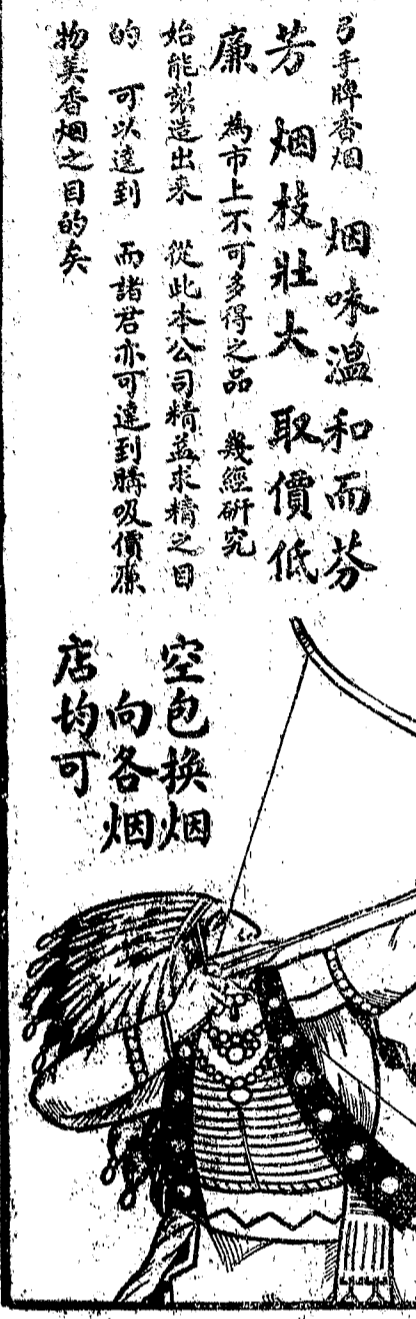 弓手牌香烟　烟味溫和而芬
芳　烟枝壯大　取價低
廉　為市上不可多得之品　幾經研究
始能製造出来　從此本公司精益求精之目
的　可以達到　而諸君亦可達到購吸價廉
物美香烟之目的矣
空包換烟
向各烟
店均可